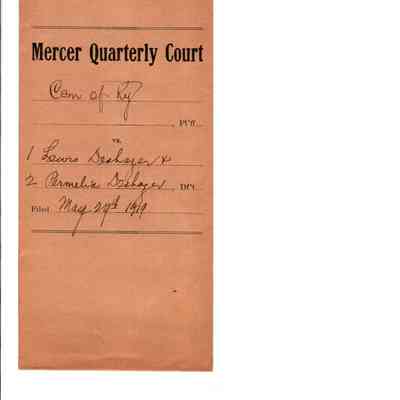 Mercer Quarterly Court
Com of Ky
, Pl'ff.
vs.
1 Lewis Deshazer &
2 Permelia Deshazer, Df't.
Filed May 29th 1919